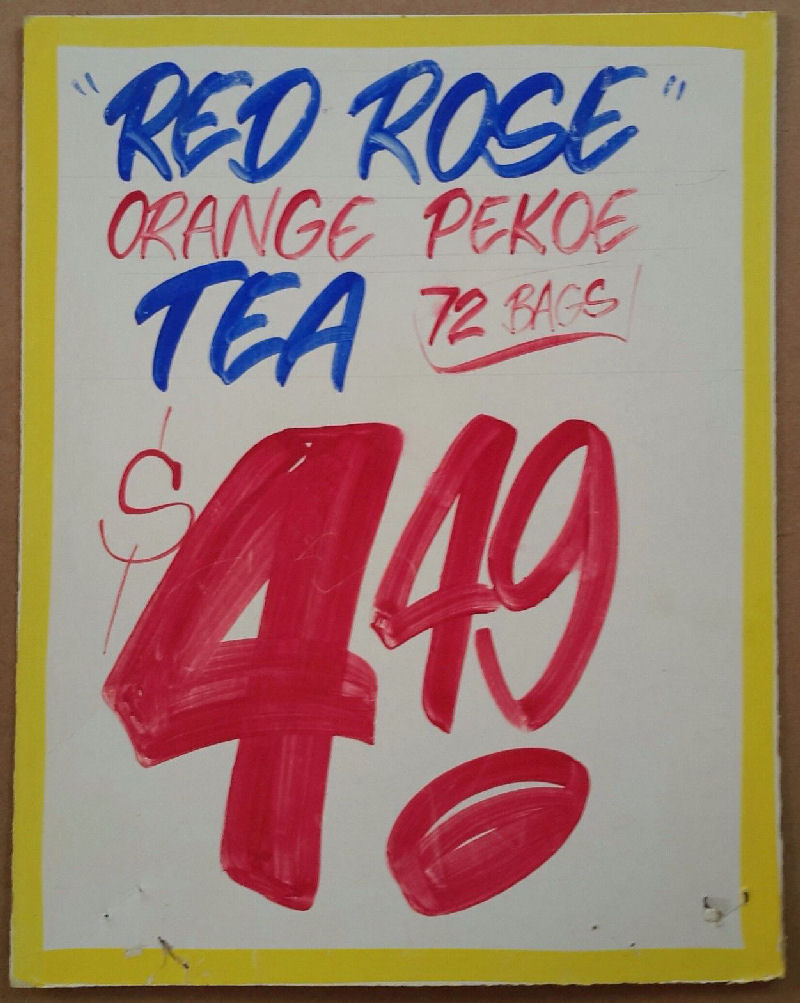 "RED ROSE"
ORANGE PEKOE
TEA 72 BAGS
$4.49